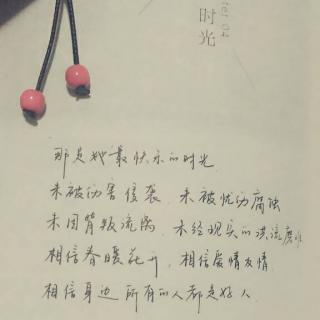 ter 04
时光
那是她最快乐的时光
未被伤害侵袭，未被忧伤腐蚀
未因背叛流离，未经现实的洪流磨
相信春暖花开，相信爱情友情
相信身边所有的人都是好人